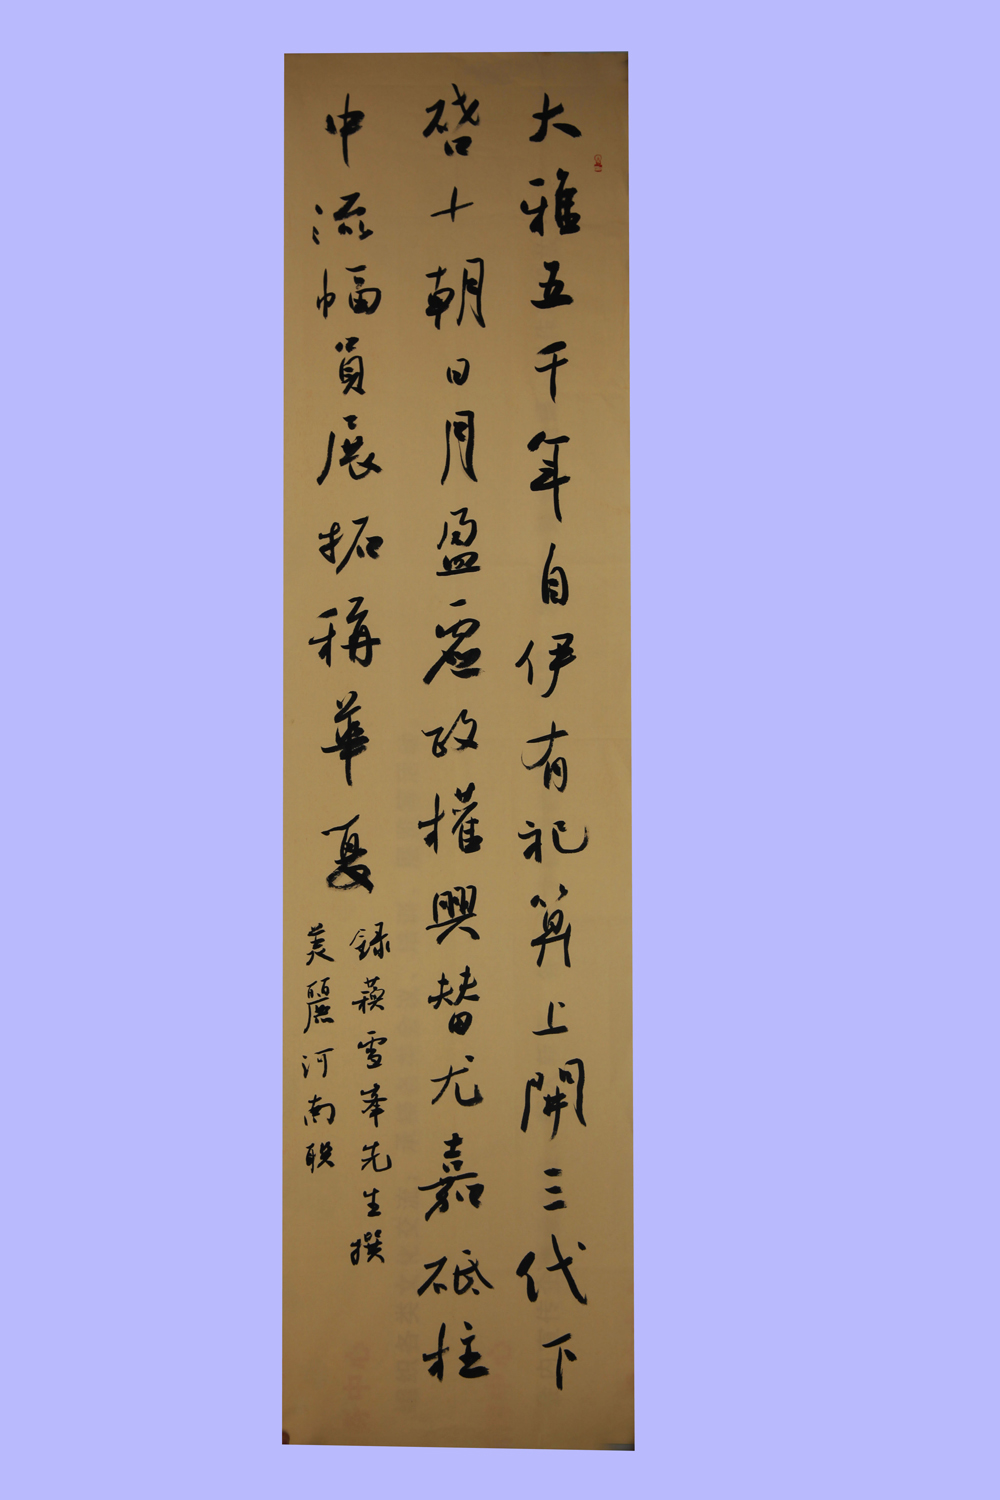 大雅五千年自伊有祀算上開三代下
啓十朝日月盈虚政權興替尤嘉砥柱
中流幅員展拓稱華夏
録蘇雪峯先生撰
美麗河南联